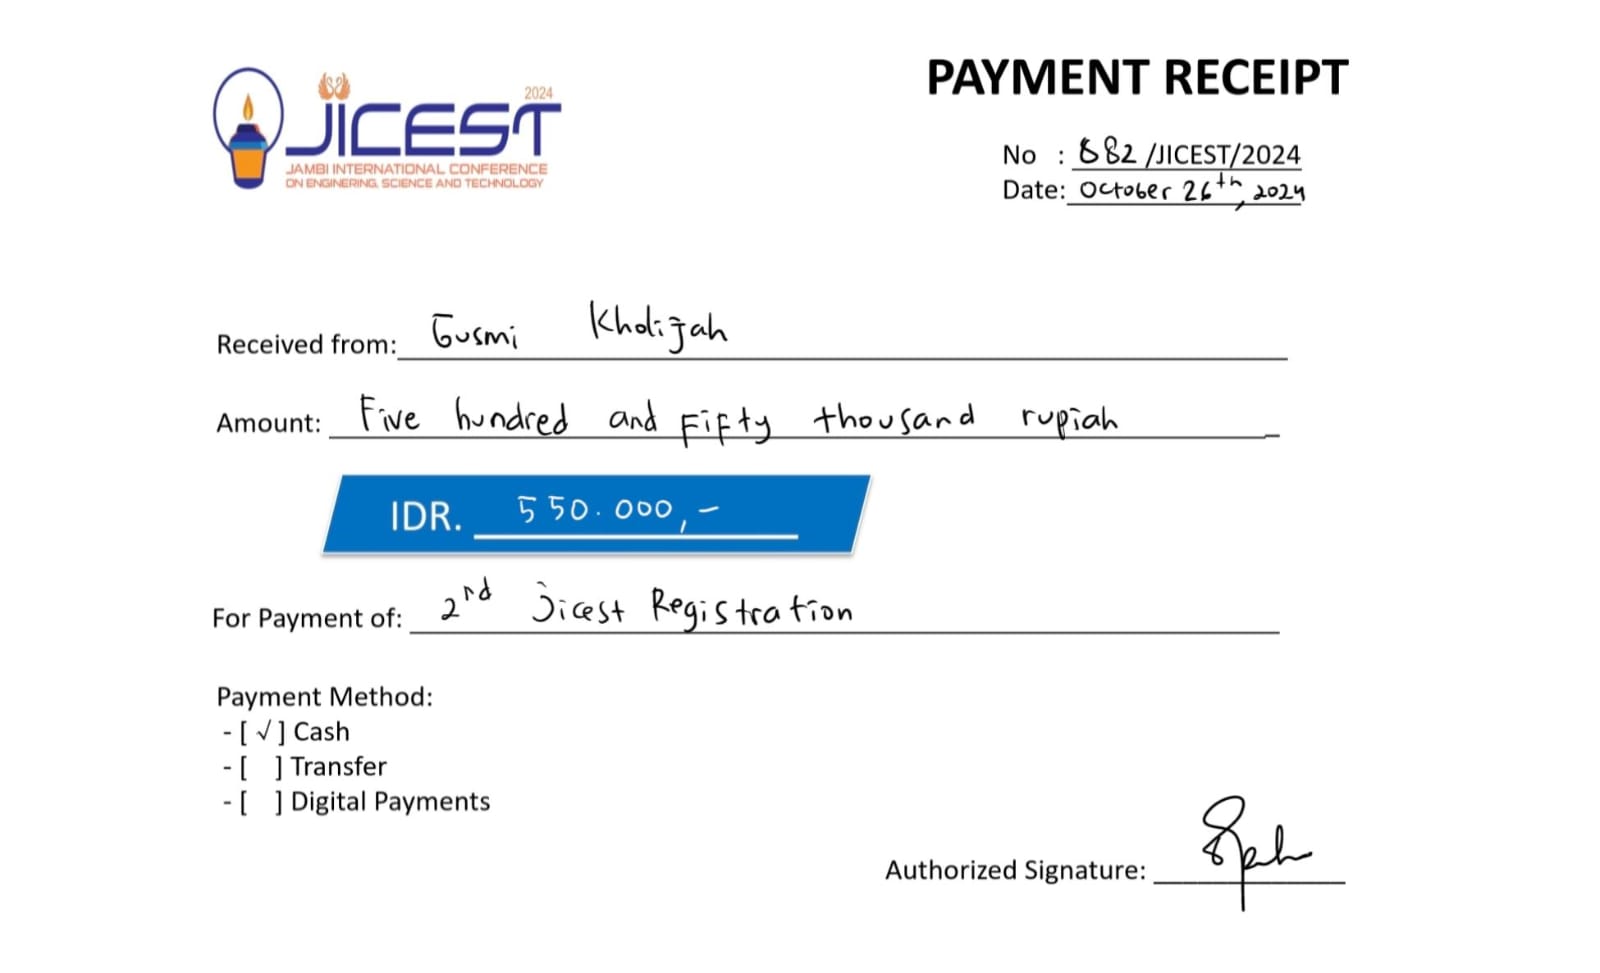 2024
JICEST
JAMBI INTERNATIONAL CONFERENCE
ON ENGINERING, SCIENCE AND TECHNOLOGY
PAYMENT RECEIPT
No : 882 /JICEST/2024
Date: October 26th, 2024
Received from: Gusmi Kholijah
Amount: Five hundred and Fifty thousand rupiah
IDR. 550.000,-
For Payment of: 2nd Jicest Registration
Payment Method:
- [ √ ] Cash
- [ ] Transfer
- [ ] Digital Payments
Authorized Signature: